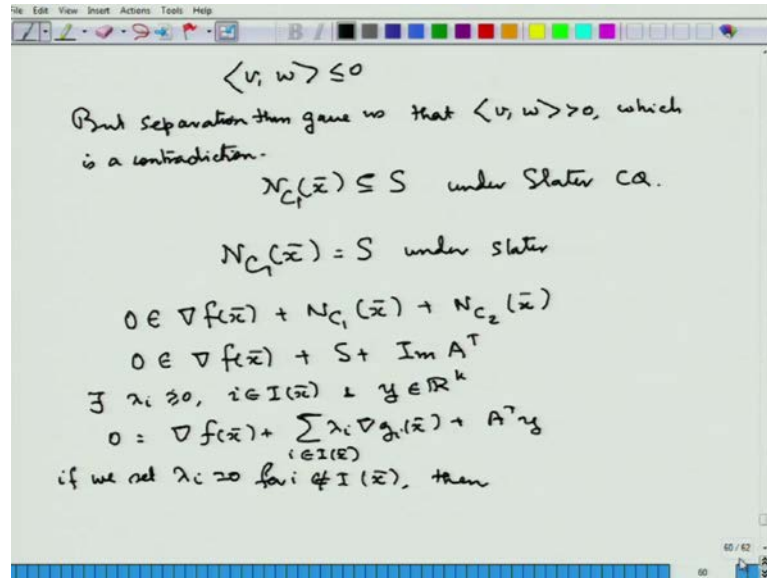 File Edit View Insert Actions Tools Help
⟨v, w⟩ ≤ 0
But separation then gave us that ⟨v, w⟩ > 0, which
is a contradiction.
N_{C_1}(x̄) ⊆ S under Slater CQ.
N_{C_1}(x̄) = S under slater
0 ∈ ∇f(x̄) + N_{C_1}(x̄) + N_{C_2}(x̄)
0 ∈ ∇f(x̄) + S + Im A^T
∃ λ_i ≥ 0, i ∈ I(x̄) & y ∈ ℝ^k
0 = ∇f(x̄) + ∑_{i ∈ I(x̄)} λ_i ∇g_i(x̄) + A^T y
if we set λ_i = 0 for i ∉ I(x̄), then
60 / 62
60